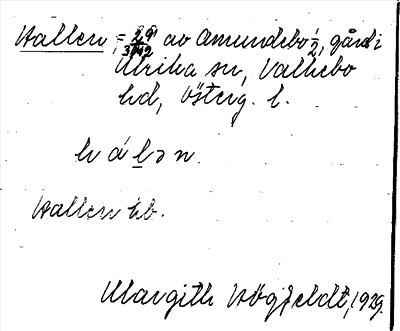 Hallen = av Amundebo 1/2, gård i
Ulrika sn, Valkebo
hd, Österg. l.
h á l ə n.
Hallen hb.
Margith Högfeldt, 1929.